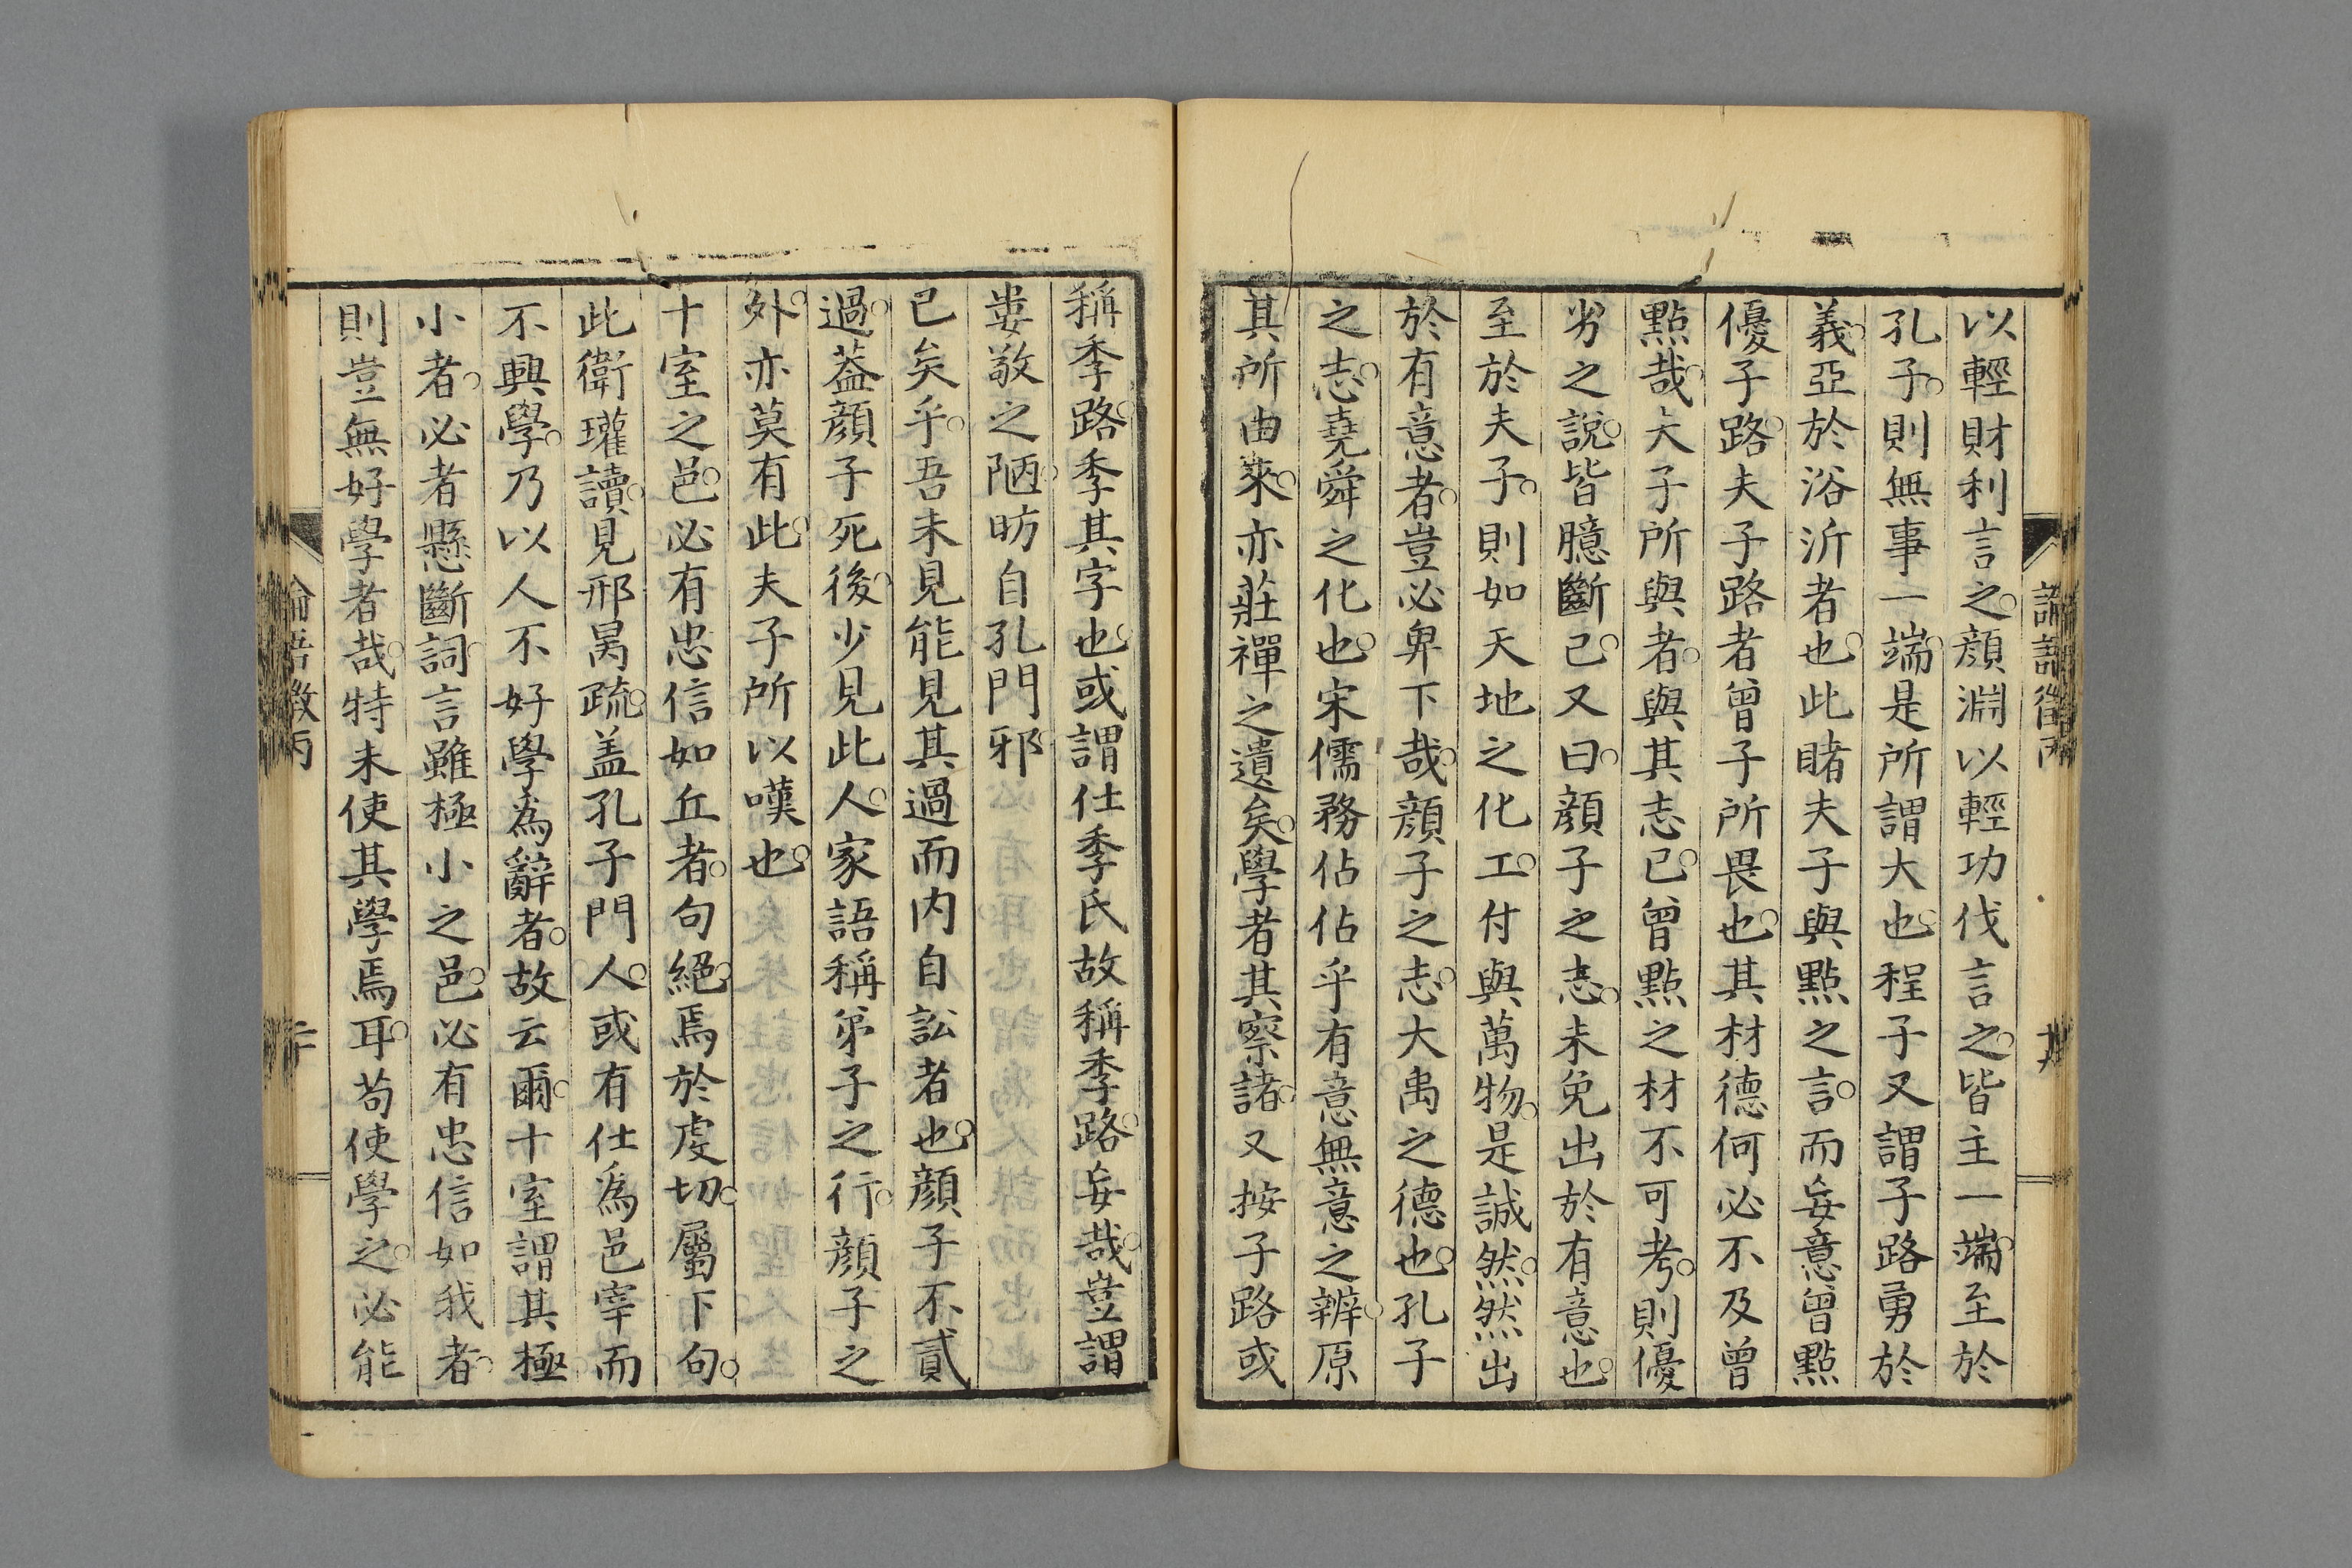 以輕財利言之顔淵以輕功伐言之皆主一端至於
孔子則無事一端是所謂大也程子又謂子路勇於
義亞於浴沂者也此睹夫子與點之言而妄意曾點
優子路夫子路者曾子所畏也其材德何必不及曾
點哉夫子所與者與其志已曾點之材不可考則優
劣之說皆臆斷已又曰顔子之志未免出於有意也
至於夫子則如天地之化工付與萬物是誠然然出
於有意者豈必卑下哉顔子之志大禹之德也孔子
之志堯舜之化也宋儒務佔佔乎有意無意之辨原
其所由來亦莊禪之遺矣學者其察諸又按子路或
稱季路季其字也或謂仕季氏故稱季路妄哉豈謂
婁敬之陋昉自孔門邪
已矣乎吾未見能見其過而内自訟者也顔子不貳
過葢顔子死後少見此人家語稱弟子之行顔子之
外亦莫有此夫子所以嘆也
十室之邑必有忠信如丘者句絕焉於虔切屬下句
此衛瓘讀見邢昺疏盖孔子門人或有仕為邑宰而
不興學乃以人不好學為辭者故云爾十室謂其極
小者必者懸斷詞言雖極小之邑必有忠信如我者
則豈無好學者哉特未使其學焉耳苟使學之必能
論語徵丙
二十